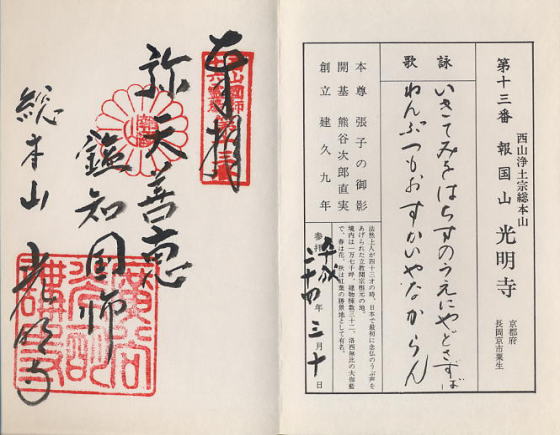 第十三番 報国山 光明寺
西山浄土宗総本山
京都府
長岡京市粟生
詠歌
いきてみをはちすのうえにやどさずば
ねんぶつもおすかいやなからん
本尊 張子の御影
開基 熊谷次郎直実
創立 建久九年
法然上人が四十三才の時、日本で最初に念仏のうぶ声を
あげられた立教開宗根元の地。
境内は一万七千坪、建物棟数三十二、洛西無比の大伽藍
で、春は花、秋は紅葉の勝景地として有名。
参拝 平成二十四年三月十日
奉拝
弥天善恵
鑑知国師
総本山 光明寺